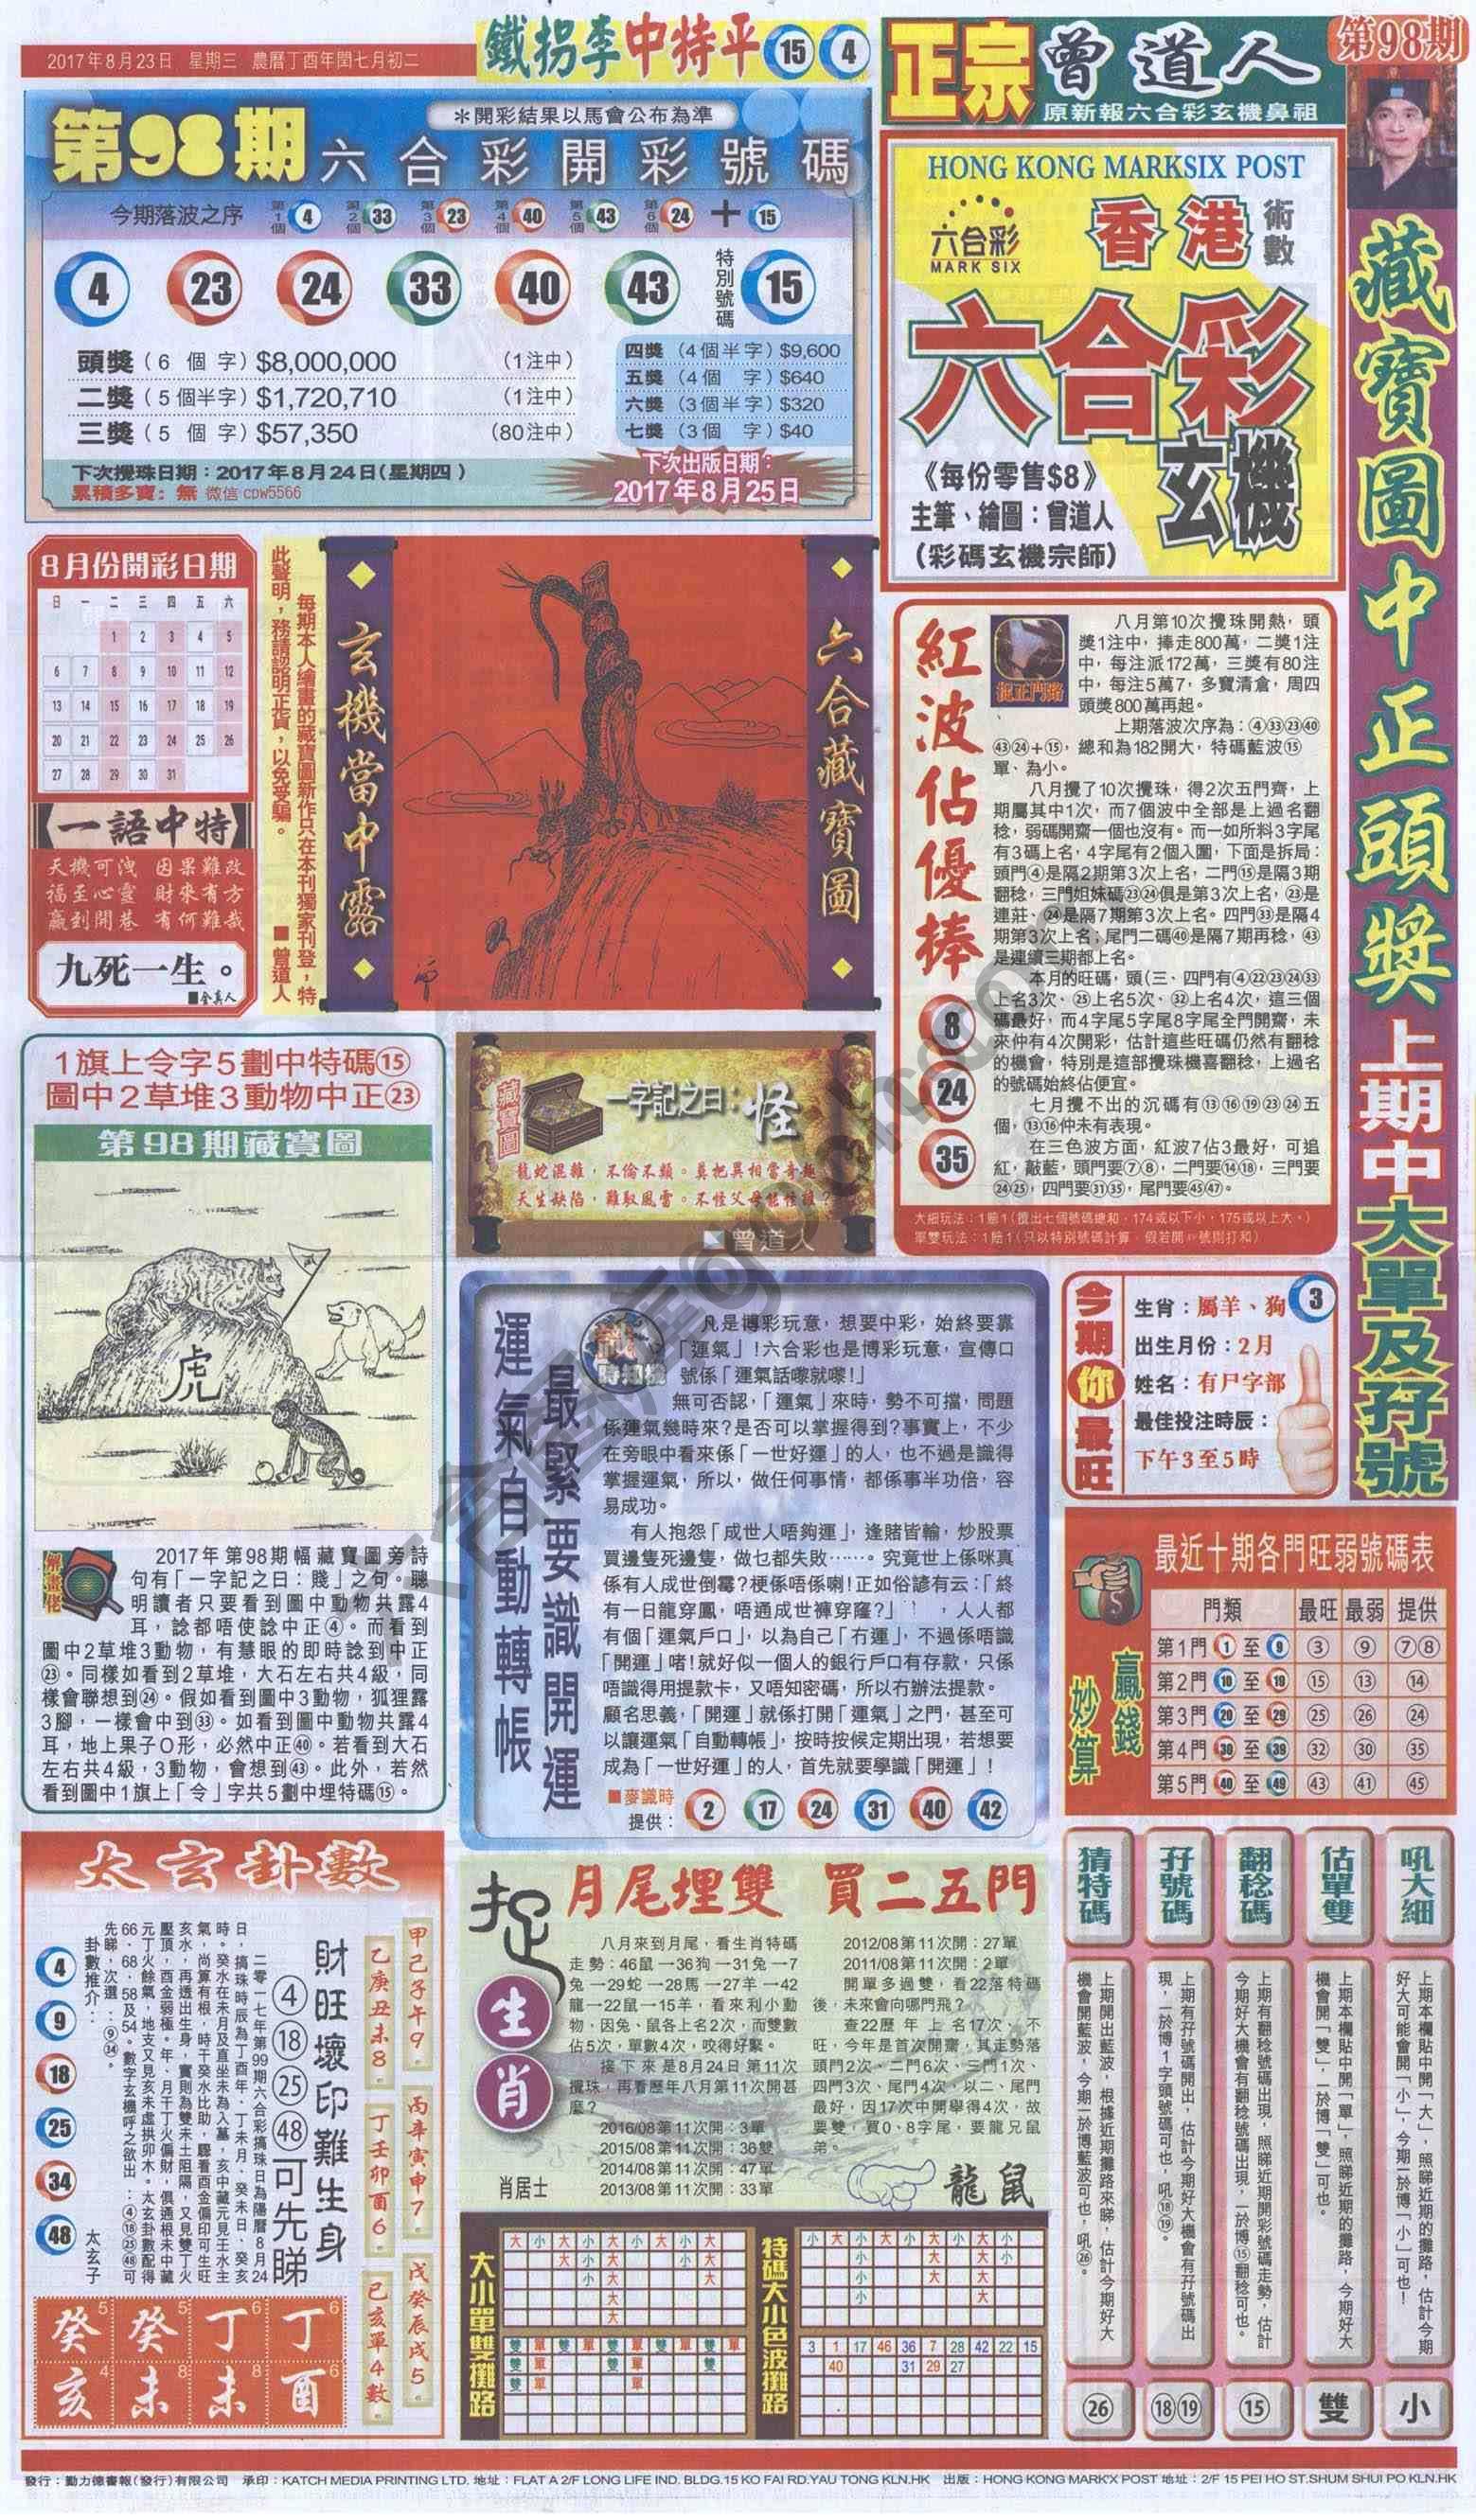 2017年8月23日 星期三 農曆丁酉年閏七月初二
鐵拐李中特平 15 4
第98期 六合彩開彩號碼
＊開彩結果以馬會公布為準
今期落波之序 第1個 4 第2個 33 第3個 23 第4個 40 第5個 43 第6個 24 + 15
4 23 24 33 40 43 特別號碼 15
頭獎（6 個 字）$8,000,000 （1注中）
二獎（5個半字）$1,720,710 （1注中）
三獎（5 個 字）$57,350 （80注中）
四獎（4個半字）$9,600
五獎（4個 字）$640
六獎（3個半字）$320
七獎（3個 字）$40
下次攪珠日期：2017年8月24日(星期四)
累積多寶：無 微信 cpw5566
下次出版日期：
2017年8月25日
正宗 曾道人
原新報六合彩玄機鼻祖
第98期
HONG KONG MARKSIX POST
六合彩
MARK SIX
香港術數
六合彩
玄機
《每份零售$8》
主筆、繪圖：曾道人
（彩碼玄機宗師）
藏寶圖中正頭獎上期中大單及孖號
8月份開彩日期
日 一 二 三 四 五 六
1 2 3 4 5
6 7 8 9 10 11 12
13 14 15 16 17 18 19
20 21 22 23 24 25 26
27 28 29 30 31
一語中特
天機可洩 因果難改
福至心靈 財來有方
贏到開巷 有何難哉
九死一生。
■金真人
每期本人繪畫的藏寶圖新作只在本刊獨家刊登，特
此聲明，務請認明正貨，以免受騙。 ■曾道人
玄機當中露
六合藏寶圖
紅波佔優捧
8
24
35
八月第10次攪珠開熱，頭
獎1注中，捧走800萬，二獎1注
中，每注派172萬，三獎有80注
中，每注5萬7，多寶清倉，周四
頭獎800萬再起。
上期落波次序為：④㉝㉓㊵
㊸㉔+⑮，總和為182開大，特碼藍波⑮
單、為小。
八月攪了10次攪珠，得2次五門齊，上
期屬其中1次，而7個波中全部是上過名翻
稔，弱碼開齋一個也沒有。而一如所料3字尾
有3碼上名，4字尾有2個入圍，下面是拆局：
頭門④是隔2期第3次上名，二門⑮是隔3期
翻稔，三門姐妹碼㉓㉔俱是第3次上名，㉓是
連莊、㉔是隔7期第3次上名。四門㉝是隔4
期第3次上名；尾門二碼㊵是隔7期再稔，㊸
是連續三期都上名。
本月的旺碼，頭（三、四門有④㉒㉓㉔㉝
上名3次、㉕上名5次、㉜上名4次，這三個
碼最好，而4字尾5字尾8字尾全門開齋，未
來仲有4次開彩，估計這些旺碼仍然有翻稔
的機會，特別是這部攪珠機喜翻稔，上過名
的號碼始終佔便宜。
七月攪不出的沉碼有⑬⑯⑲㉓㉔五
個，⑬⑯仲未有表現。
在三色波方面，紅波7佔3最好，可追
紅，敲藍，頭門要⑦⑧，二門要⑭⑱，三門要
㉔㉕，四門要㉛㉟，尾門要㊺㊼。
大細玩法：1賠1（攪出七個號碼總和，174或以下小，175或以上大。）
單雙玩法：1賠1（只以特別號碼計算，假若開 號則打和）
1旗上令字5劃中特碼⑮
圖中2草堆3動物中正㉓
第98期藏寶圖
虎
藏寶圖
一字記之曰：怪
龍蛇混雜，不倫不類。莫把異相當奇趣
天生缺陷，難馭風雷。不怪父母能怪誰？
曾道人
解畫佬
2017年第98期幅藏寶圖旁詩
句有「一字記之曰：賤」之句。聰
明讀者只要看到圖中動物共露4
耳，諗都唔使諗中正④。而看到
圖中2草堆3動物，有慧眼的即時諗到中正
㉓。同樣如看到2草堆，大石左右共4級，同
樣會聯想到㉔。假如看到圖中3動物，狐狸露
3腳，一樣會中到㉝。如看到圖中動物共露4
耳，地上果子O形，必然中正㊵。若看到大石
左右共4級，3動物，會想到㊸。此外，若然
看到圖中1旗上「令」字共5劃中埋特碼⑮。
最緊要識開運
運氣自動轉帳
凡是博彩玩意，想要中彩，始終要靠
「運氣」！六合彩也是博彩玩意，宣傳口
號係「運氣話嚟就嚟！」
無可否認，「運氣」來時，勢不可擋，問題
係運氣幾時來？是否可以掌握得到？事實上，不少
在旁眼中看來係「一世好運」的人，也不過是識得
掌握運氣，所以，做任何事情，都係事半功倍，容
易成功。
有人抱怨「成世人唔夠運」，逢賭皆輸，炒股票
買邊隻死邊隻，做乜都失敗……。究竟世上係咪真
係有人成世倒霉？梗係唔係喇！正如俗諺有云：「終
有一日龍穿鳳，唔通成世褲穿窿？」，人人都
有個「運氣戶口」，以為自己「冇運」，不過係唔識
「開運」啫！就好似一個人的銀行戶口有存款，只係
唔識得用提款卡，又唔知密碼，所以冇辦法提款。
顧名思義，「開運」就係打開「運氣」之門，甚至可
以讓運氣「自動轉帳」，按時按候定期出現，若想要
成為「一世好運」的人，首先就要學識「開運」！
■麥識時
提供： 2 17 24 31 40 42
今期你最旺
生肖：屬羊、狗 3
出生月份：2月
姓名：有尸字部
最佳投注時辰：
下午3至5時
最近十期各門旺弱號碼表
贏錢妙算
門類 最旺 最弱 提供
第1門 1 至 9 ③ ⑨ ⑦⑧
第2門 10 至 19 ⑮ ⑬ ⑭
第3門 20 至 29 ㉕ ㉖ ㉔
第4門 30 至 39 ㉜ ㉚ ㉟
第5門 40 至 49 ㊸ ㊶ ㊺
太玄卦數
甲己子午9。
乙庚丑未8。
丙辛寅申7。
丁壬卯酉6。
戊癸辰戌5。
巳亥單4數。
財旺壞印難生身
④⑱㉕㊽可先睇
二零一七年第99期六合彩搞珠日為陽曆8月24
日，搞珠時辰為丁酉年、丁未月、癸未日、癸亥
時。癸水在未月及直坐未為入墓，亥中藏元見壬水主
氣，尚算有根，時干癸水比助，驟看酉金偏印可生旺
亥水，再透出生身，實則為雙未土阻隔，又見雙丁火
壓頂，酉金弱極。年、月干丁火偏財，俱通根未中藏
元丁火餘氣，地支又見亥未虛拱卯木。太玄卦數配得
66、68、58及54。數字玄機呼之欲出：④⑱㉕㊽可
先睇，次選：⑨㉞。
卦數推介：
4 9 18 25 34 48
太玄子
癸5 癸5 丁6 丁6
亥4 未8 未8 酉6
捉生肖
月尾埋雙 買二五門
八月來到月尾，看生肖特碼
走勢：46鼠→36狗→31兔→7
兔→29蛇→28馬→27羊→42
龍→22鼠→15羊，看來利小動
物，因兔、鼠各上名2次，而雙數
佔5次，單數4次，咬得好緊。
接下來是8月24日第11次
攪珠，再看歷年八月第11次開甚
麼？
2016/08第11次開：3單
2015/08第11次開：36雙
2014/08第11次開：47單
2013/08第11次開：33單
2012/08第11次開：27單
2011/08第11次開：2單
開單多過雙，看22落特碼
後，未來會向哪門飛？
查22歷年上名17次、不
旺，今年是首次開齋，其走勢落
頭門2次、二門6次、三門1次、
四門3次、尾門4次，以二、尾門
最好，因17次中開舉得4次，故
要雙，買0、8字尾，要龍兄鼠
弟。
肖居士
龍鼠
大小單雙攤路
大 小 大 小 大 小 大 小 大
大 小 大 小 大
小 大 大
大
大
雙 單 雙 單 雙 單 雙 單 雙 單
雙 單 雙 單 雙
雙 單 單
特碼大小色波攤路
小 大 小 大 小 大 小 大 小
小 大 大 小
小 大 大
小 大
3 1 17 46 36 7 28 42 22 15
40 31 29 27
吼大細
上期本欄貼中開「大」，照睇近期的攤路，估計今期
好大可能會開「小」，今期一於博「小」可也！
小
估單雙
上期本欄貼中開「單」，照睇近期的攤路，今期好大
機會開「雙」，一於博「雙」可也。
雙
翻稔碼
上期有翻稔號碼出現，照睇近期開彩號碼走勢，估計
今期好大機會有翻稔號碼出現，一於博⑮翻稔可也。
⑮
孖號碼
上期有孖號碼開出，估計今期好大機會有孖號碼出
現，一於博1字頭號碼可也，吼⑱⑲。
⑱⑲
猜特碼
上期開出藍波，根據近期攤路來睇，估計今期好大
機會開藍波，今期一於博藍波可也，吼㉖。
㉖
發行：勤力德書報（發行）有限公司 承印：KATCH MEDIA PRINTING LTD. 地址：FLAT A 2/F LONG LIFE IND. BLDG.15 KO FAI RD.YAU TONG KLN.HK 出版：HONG KONG MARK'X POST 地址：2/F 15 PEI HO ST.SHUM SHUI PO KLN.HK